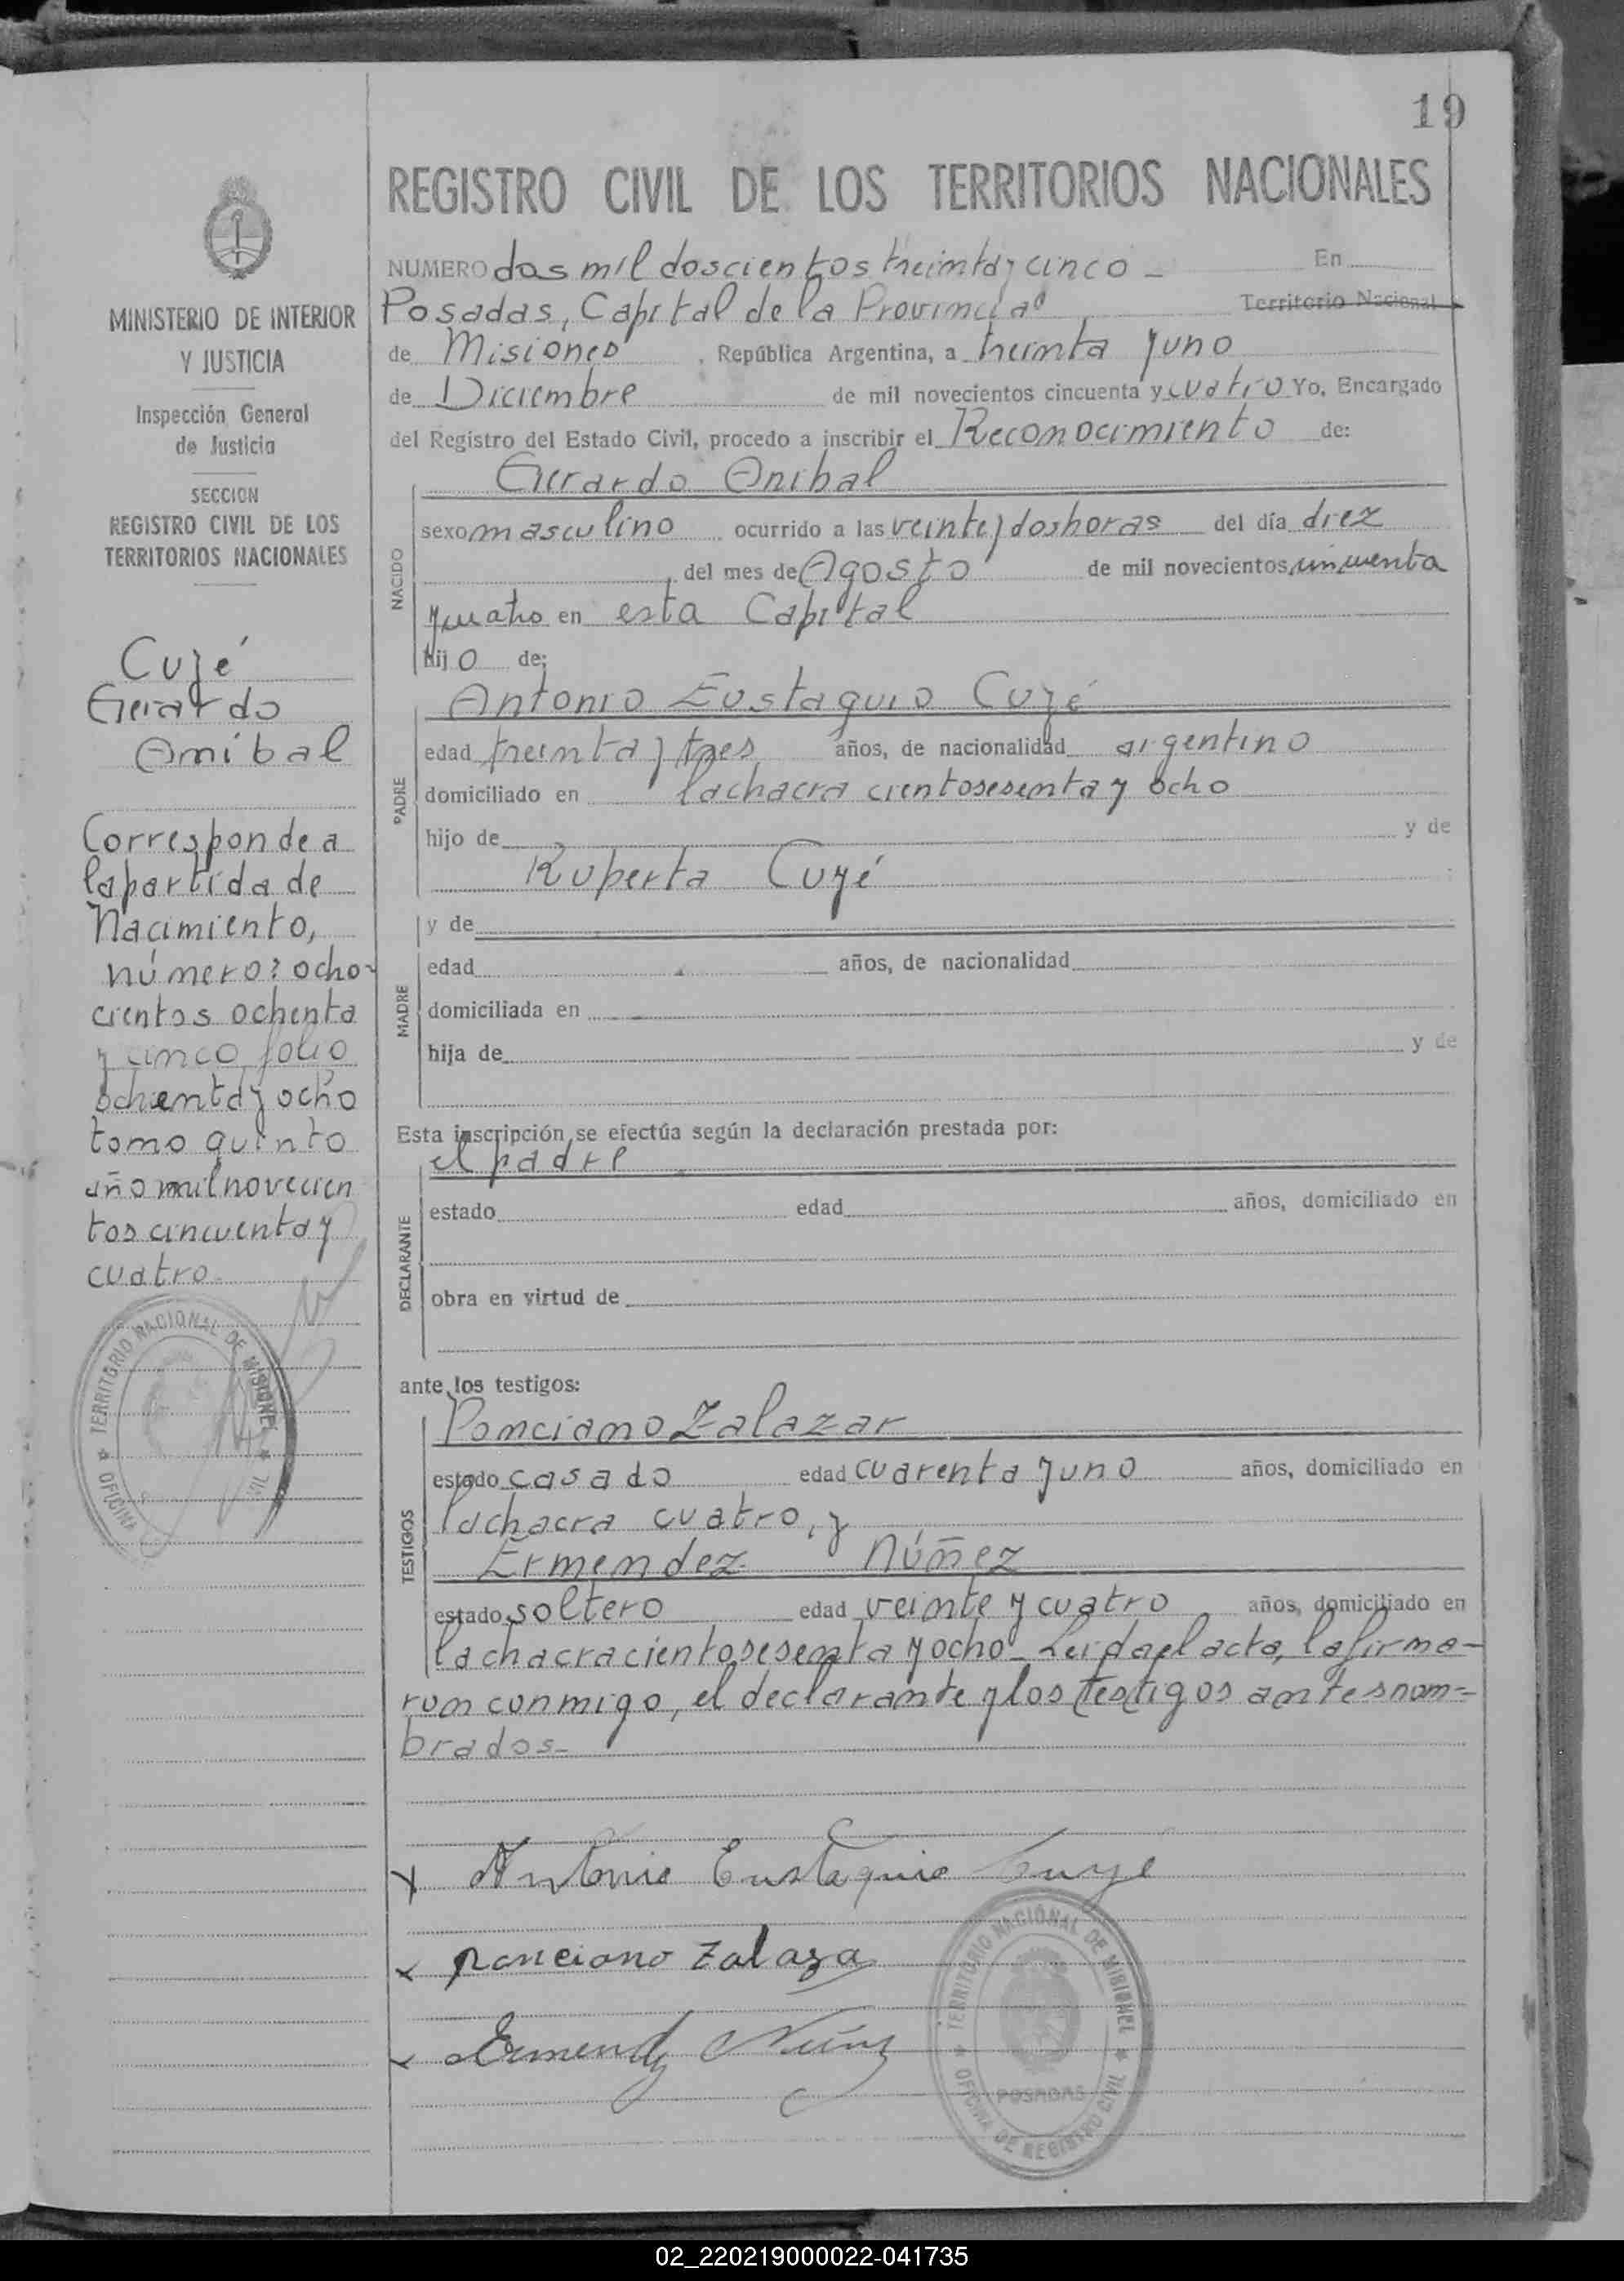 19
REGISTRO CIVIL DE LOS TERRITORIOS NACIONALES
NUMERO dos mil doscientos treinta y cinco - En
Posadas, Capital de la Provincia Territorio Nacional
de Misiones, República Argentina, a treinta y uno
de Diciembre de mil novecientos cincuenta y cuatro Yo, Encargado
del Registro del Estado Civil, procedo a inscribir el Reconocimiento de:
NACIDO
Gerardo Anibal
sexo masculino ocurrido a las veinte y dos horas del día diez
del mes de Agosto de mil novecientos cincuenta
y cuatro en esta Capital
hijo de:
PADRE
Antonio Eustaquio Cuyé
edad treinta y tres años, de nacionalidad argentino
domiciliado en la chacra ciento sesenta y ocho
hijo de y de
Ruperta Cuyé
MADRE
y de
edad años, de nacionalidad
domiciliada en
hija de y de
Esta inscripción se efectúa según la declaración prestada por:
DECLARANTE
el padre
estado edad años, domiciliado en
obra en virtud de
ante los testigos:
TESTIGOS
Ponciano Zalazar
estado casado edad cuarenta y uno años, domiciliado en
la chacra cuatro, y
Ermendez Núñez
estado soltero edad veinte y cuatro años, domiciliado en
la chacra ciento sesenta y ocho - Leida el acta, la firma-
ron conmigo, el declarante y los testigos antes nom-
brados-
Antonio Eustaquio Cuyé
ponciano Zalaza
Ermendez Núñez
TERRITORIO NACIONAL DE MISIONES
POSADAS
OFICINA DE REGISTRO CIVIL
MINISTERIO DE INTERIOR
Y JUSTICIA
Inspección General
de Justicia
SECCION
REGISTRO CIVIL DE LOS
TERRITORIOS NACIONALES
Cuyé
Gerardo
Anibal
Corresponde a
la partida de
Nacimiento,
número: ocho-
cientos ochenta
y cinco folio
ochenta y ocho
tomo quinto
año mil novecien
tos cincuenta y
cuatro
TERRITORIO NACIONAL DE MISIONES
OFICINA
02_220219000022-041735